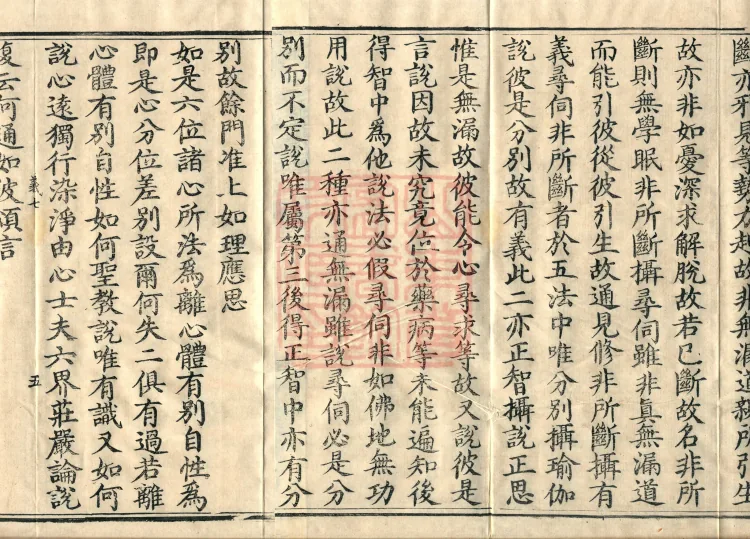 斷亦邪見等勢力起故非無漏道親所引生
故亦非如憂深求解脫故若已斷故名非所
斷則無學眠非所斷攝尋伺雖非眞無漏道
而能引彼從彼引生故通見修非所斷攝有
義尋伺非所斷者於五法中唯分別攝瑜伽
說彼是分別故有義此二亦正智攝說正思
惟是無漏故彼能令心尋求等故又說彼是
言說因故未究竟位於藥病等未能遍知後
得智中爲他說法必假尋伺非如佛地無功
用說故此二種亦通無漏雖說尋伺必是分
別而不定說唯屬第三後得正智中亦有分
別故餘門准上如理應思
如是六位諸心所法爲離心體有別自性爲
即是心分位差別設爾何失二俱有過若離
心體有別自性如何聖教說唯有識又如何
說心遠獨行染淨由心士夫六界莊嚴論說
義七 五
復云何通如彼頌言